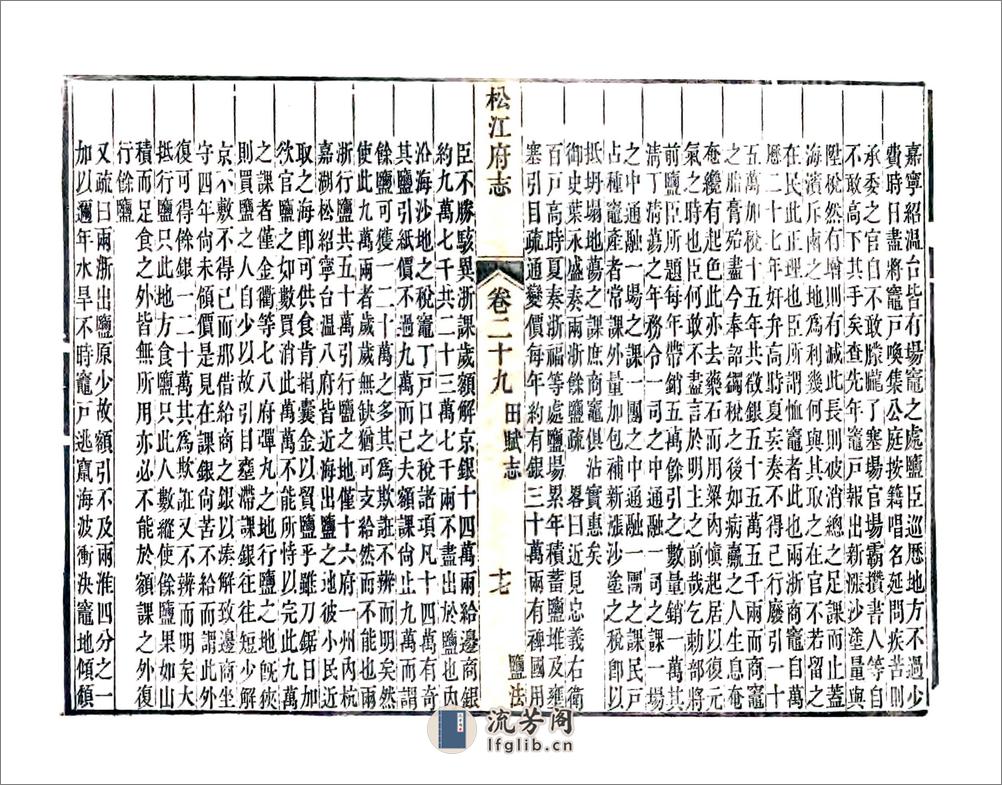 嘉寧紹溫台皆有場竈之處鹽臣巡歷地方不過少
費時日盡將竈戸喚集公庭按籍唱名延問疾苦則
承委之官自不敢朦朧了塞場官場霸攢書人等自
不敢高下其手矣查先年竈戸報出新漲沙塗量與
陞稅然有增則有減彼長則彼消總之足課而止蓋
海濱斥鹵之地為利幾何與其取之在官不若留之
在民此正理也臣所謂恤竈者此也兩浙商竈自萬
曆二十七年奸弁高時夏妄奏不得已行廢引一十
五萬加稅三年共徵銀五十五萬五千兩而商竈
之脂膏殆盡今奉詔蠲稅之後如病羸之人生息奄
奄纔有起色此亦去藥石而用粱肉慎起居以復元
氣之時也臣何敢盡言於明主之前哉乞勅部將
前鹽臣所題每年帶銷五萬餘引之數量銷一萬其
淸丁淸蕩之年務令一司之中通融一司之課一場
之中通融一場之課一團之中通融一團之民戸
占種新竈產者課外量加包補新漲沙塗之稅卽以
抵坍塌地蕩之課庶商竈俱沾實惠矣
御史葉永盛奏兩浙餘鹽疏　畧曰近見忠義右衛
百戸高時夏奏浙福等處鹽場累年積蓄鹽堆及壅
塞引目疏通變價每年約有銀三十萬兩有裨國用
松江府志　卷二十九　田賦志　十七　鹽法
臣不勝駭異浙課歲額解京銀十四萬兩給邊商銀
約九萬七千共二十三萬七千兩不盡出於鹽也內
沿海沙地之稅竈丁戸口之稅諸項凡十四萬有奇
其鹽引紙價不過九萬而已夫額課尙止九萬而謂
餘鹽可獲一二十萬之多其為欺誑不辨而明矣然
使此九萬兩者歲歲無缺猶可支給然而不能也
浙行鹽共五十萬引行鹽之地僅十六府一州內杭
嘉湖松紹寧台溫八府皆近海出鹽之地彼小民近
取之海卽可供食肯捐囊金以貿鹽乎雖刀鋸日加
欲官鹽之如數買消此萬萬不能所恃以完此九萬
之課者僅金衢等七八府彈丸之地行鹽之地旣狹
則買鹽之人自少所以引目壅滯課銀往往短少解
京不敷不得已而那借給商之銀以湊解致邊商坐
守四年尙未領價是見在課銀尙苦不給而謂此外
復可得餘銀一二十萬其為欺誑又不辨而明矣大
抵行鹽只此地方食鹽只此人數縱使餘鹽果如山
積而足食之外皆無所用亦必不能於額課之外復
行餘鹽
又疏曰兩浙出鹽原少故額引不及兩淮四分之一
加以邇年水旱不時竈戸逃竄海波衝決竈地傾頹
流芳阁
lfglib.cn